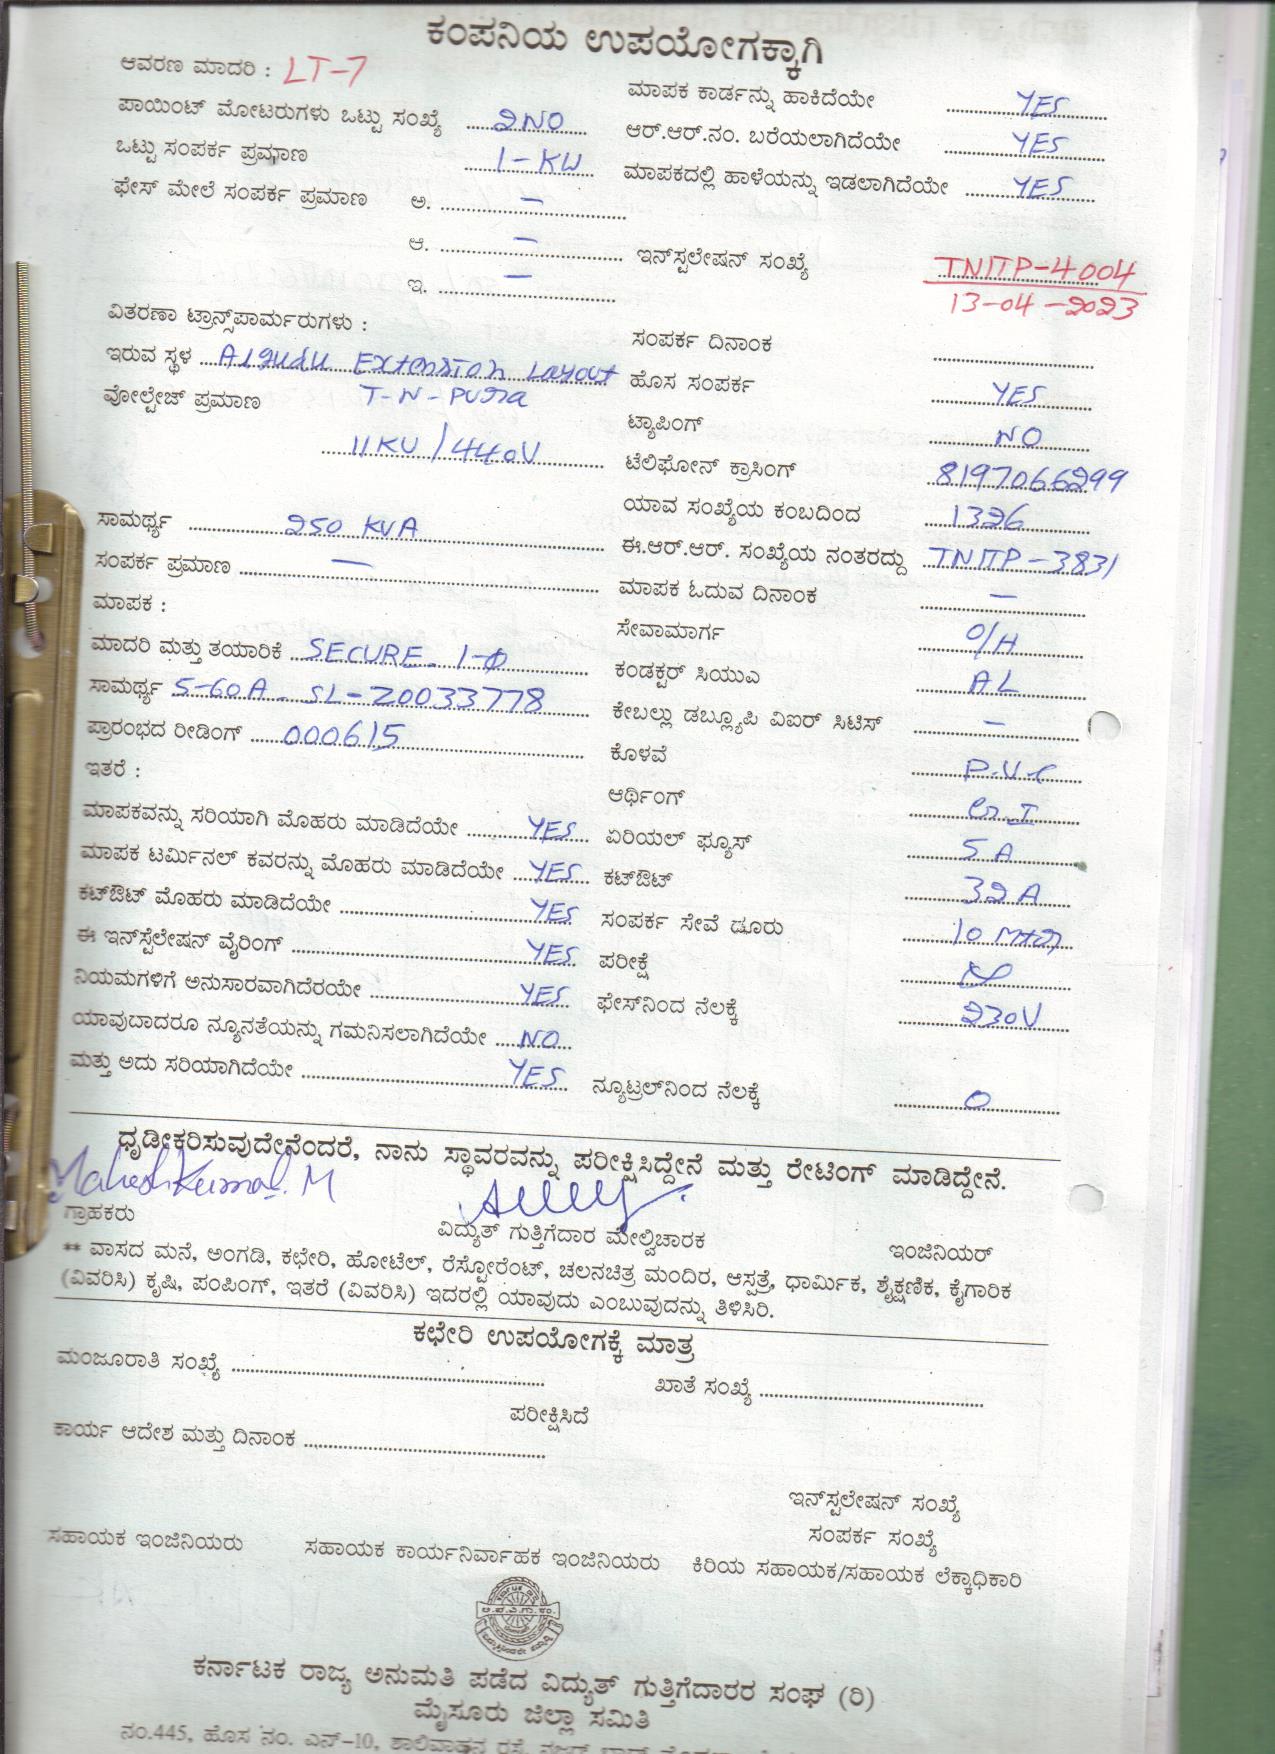 ಕಂಪನಿಯ ಉಪಯೋಗಕ್ಕಾಗಿ
ಆವರಣ ಮಾದರಿ : LT-7
ಮಾಪಕ ಕಾರ್ಡನ್ನು ಹಾಕಿದೆಯೇ YES
ಪಾಯಿಂಟ್ ಮೋಟರುಗಳು ಒಟ್ಟು ಸಂಖ್ಯೆ 2NO
ಆರ್.ಆರ್.ನಂ. ಬರೆಯಲಾಗಿದೆಯೇ YES
ಒಟ್ಟು ಸಂಪರ್ಕ ಪ್ರಮಾಣ 1-KW
ಮಾಪಕದಲ್ಲಿ ಹಾಳೆಯನ್ನು ಇಡಲಾಗಿದೆಯೇ YES
ಫೇಸ್ ಮೇಲೆ ಸಂಪರ್ಕ ಪ್ರಮಾಣ ಅ. –
ಆ. –
ಇನ್‌ಸ್ಟಲೇಷನ್ ಸಂಖ್ಯೆ TNITP-4004
13-04-2023
ಇ. –
ವಿತರಣಾ ಟ್ರಾನ್ಸ್‌ಪಾರ್ಮರುಗಳು :
ಸಂಪರ್ಕ ದಿನಾಂಕ
ಇರುವ ಸ್ಥಳ Algudu Extension Layout
T-N-Pura
ಹೊಸ ಸಂಪರ್ಕ YES
ವೋಲ್ಟೇಜ್ ಪ್ರಮಾಣ
11KV/440V
ಟ್ಯಾಪಿಂಗ್ NO
ಟೆಲಿಫೋನ್ ಕ್ರಾಸಿಂಗ್ 8197066299
ಯಾವ ಸಂಖ್ಯೆಯ ಕಂಬದಿಂದ 1326
ಸಾಮರ್ಥ್ಯ 250 KVA
ಈ.ಆರ್.ಆರ್. ಸಂಖ್ಯೆಯ ನಂತರದ್ದು TNITP-3831
ಸಂಪರ್ಕ ಪ್ರಮಾಣ –
ಮಾಪಕ ಓದುವ ದಿನಾಂಕ –
ಮಾಪಕ :
ಸೇವಾಮಾರ್ಗ O/H
ಮಾದರಿ ಮತ್ತು ತಯಾರಿಕೆ SECURE- 1-Φ
ಕಂಡಕ್ಟರ್ ಸಿಯುಎ AL
ಸಾಮರ್ಥ್ಯ 5-60A- SL-Z0033778
ಕೇಬಲ್ಲು ಡಬ್ಲ್ಯೂಪಿ ವಿಐರ್ ಸಿಟಿಸ್ –
ಪ್ರಾರಂಭದ ರೀಡಿಂಗ್ 000615
ಕೊಳವೆ P.V.C
ಇತರೆ :
ಆರ್ಥಿಂಗ್ G.I
ಮಾಪಕವನ್ನು ಸರಿಯಾಗಿ ಮೊಹರು ಮಾಡಿದೆಯೇ YES
ಏರಿಯಲ್ ಫ್ಯೂಸ್ 5A
ಮಾಪಕ ಟರ್ಮಿನಲ್ ಕವರನ್ನು ಮೊಹರು ಮಾಡಿದೆಯೇ YES
ಕಟ್‌ಔಟ್ 32A
ಕಟ್‌ಔಟ್ ಮೊಹರು ಮಾಡಿದೆಯೇ YES
ಸಂಪರ್ಕ ಸೇವೆ ದೂರು 10 Mtr
ಈ ಇನ್‌ಸ್ಟೆಲೇಷನ್ ವೈರಿಂಗ್ YES
ಪರೀಕ್ಷೆ
ನಿಯಮಗಳಿಗೆ ಅನುಸಾರವಾಗಿದೆರಯೇ YES
ಫೇಸ್‌ನಿಂದ ನೆಲಕ್ಕೆ 230V
ಯಾವುದಾದರೂ ನ್ಯೂನತೆಯನ್ನು ಗಮನಿಸಲಾಗಿದೆಯೇ NO
ಮತ್ತು ಅದು ಸರಿಯಾಗಿದೆಯೇ YES
ನ್ಯೂಟ್ರಲ್‌ನಿಂದ ನೆಲಕ್ಕೆ 0
ಧೃಡೀಕರಿಸುವುದೇನೆಂದರೆ, ನಾನು ಸ್ಥಾವರವನ್ನು ಪರೀಕ್ಷಿಸಿದ್ದೇನೆ ಮತ್ತು ರೇಟಿಂಗ್ ಮಾಡಿದ್ದೇನೆ.
MaheshKumar. M
ಗ್ರಾಹಕರು
ವಿದ್ಯುತ್ ಗುತ್ತಿಗೆದಾರ ಮೇಲ್ವಿಚಾರಕ
ಇಂಜಿನಿಯರ್
** ವಾಸದ ಮನೆ, ಅಂಗಡಿ, ಕಛೇರಿ, ಹೋಟೆಲ್, ರೆಸ್ಟೋರೆಂಟ್, ಚಲನಚಿತ್ರ ಮಂದಿರ, ಆಸ್ಪತ್ರೆ, ಧಾರ್ಮಿಕ, ಶೈಕ್ಷಣಿಕ, ಕೈಗಾರಿಕ
(ವಿವರಿಸಿ) ಕೃಷಿ, ಪಂಪಿಂಗ್, ಇತರೆ (ವಿವರಿಸಿ) ಇದರಲ್ಲಿ ಯಾವುದು ಎಂಬುವುದನ್ನು ತಿಳಿಸಿರಿ.
ಕಛೇರಿ ಉಪಯೋಗಕ್ಕೆ ಮಾತ್ರ
ಮಂಜೂರಾತಿ ಸಂಖ್ಯೆ
ಖಾತೆ ಸಂಖ್ಯೆ
ಪರೀಕ್ಷಿಸಿದೆ
ಕಾರ್ಯ ಆದೇಶ ಮತ್ತು ದಿನಾಂಕ
ಇನ್‌ಸ್ಟಲೇಷನ್ ಸಂಖ್ಯೆ
ಸಂಪರ್ಕ ಸಂಖ್ಯೆ
ಸಹಾಯಕ ಇಂಜಿನಿಯರು
ಸಹಾಯಕ ಕಾರ್ಯನಿರ್ವಾಹಕ ಇಂಜಿನಿಯರು
ಕಿರಿಯ ಸಹಾಯಕ/ಸಹಾಯಕ ಲೆಕ್ಕಾಧಿಕಾರಿ
ಕರ್ನಾಟಕ ರಾಜ್ಯ ಅನುಮತಿ ಪಡೆದ ವಿದ್ಯುತ್ ಗುತ್ತಿಗೆದಾರರ ಸಂಘ (ರಿ)
ಮೈಸೂರು ಜಿಲ್ಲಾ ಸಮಿತಿ
ನಂ.445, ಹೊಸ ನಂ. ಎನ್-10, ಶಾಲಿವಾಹನ ರಸ್ತೆ,